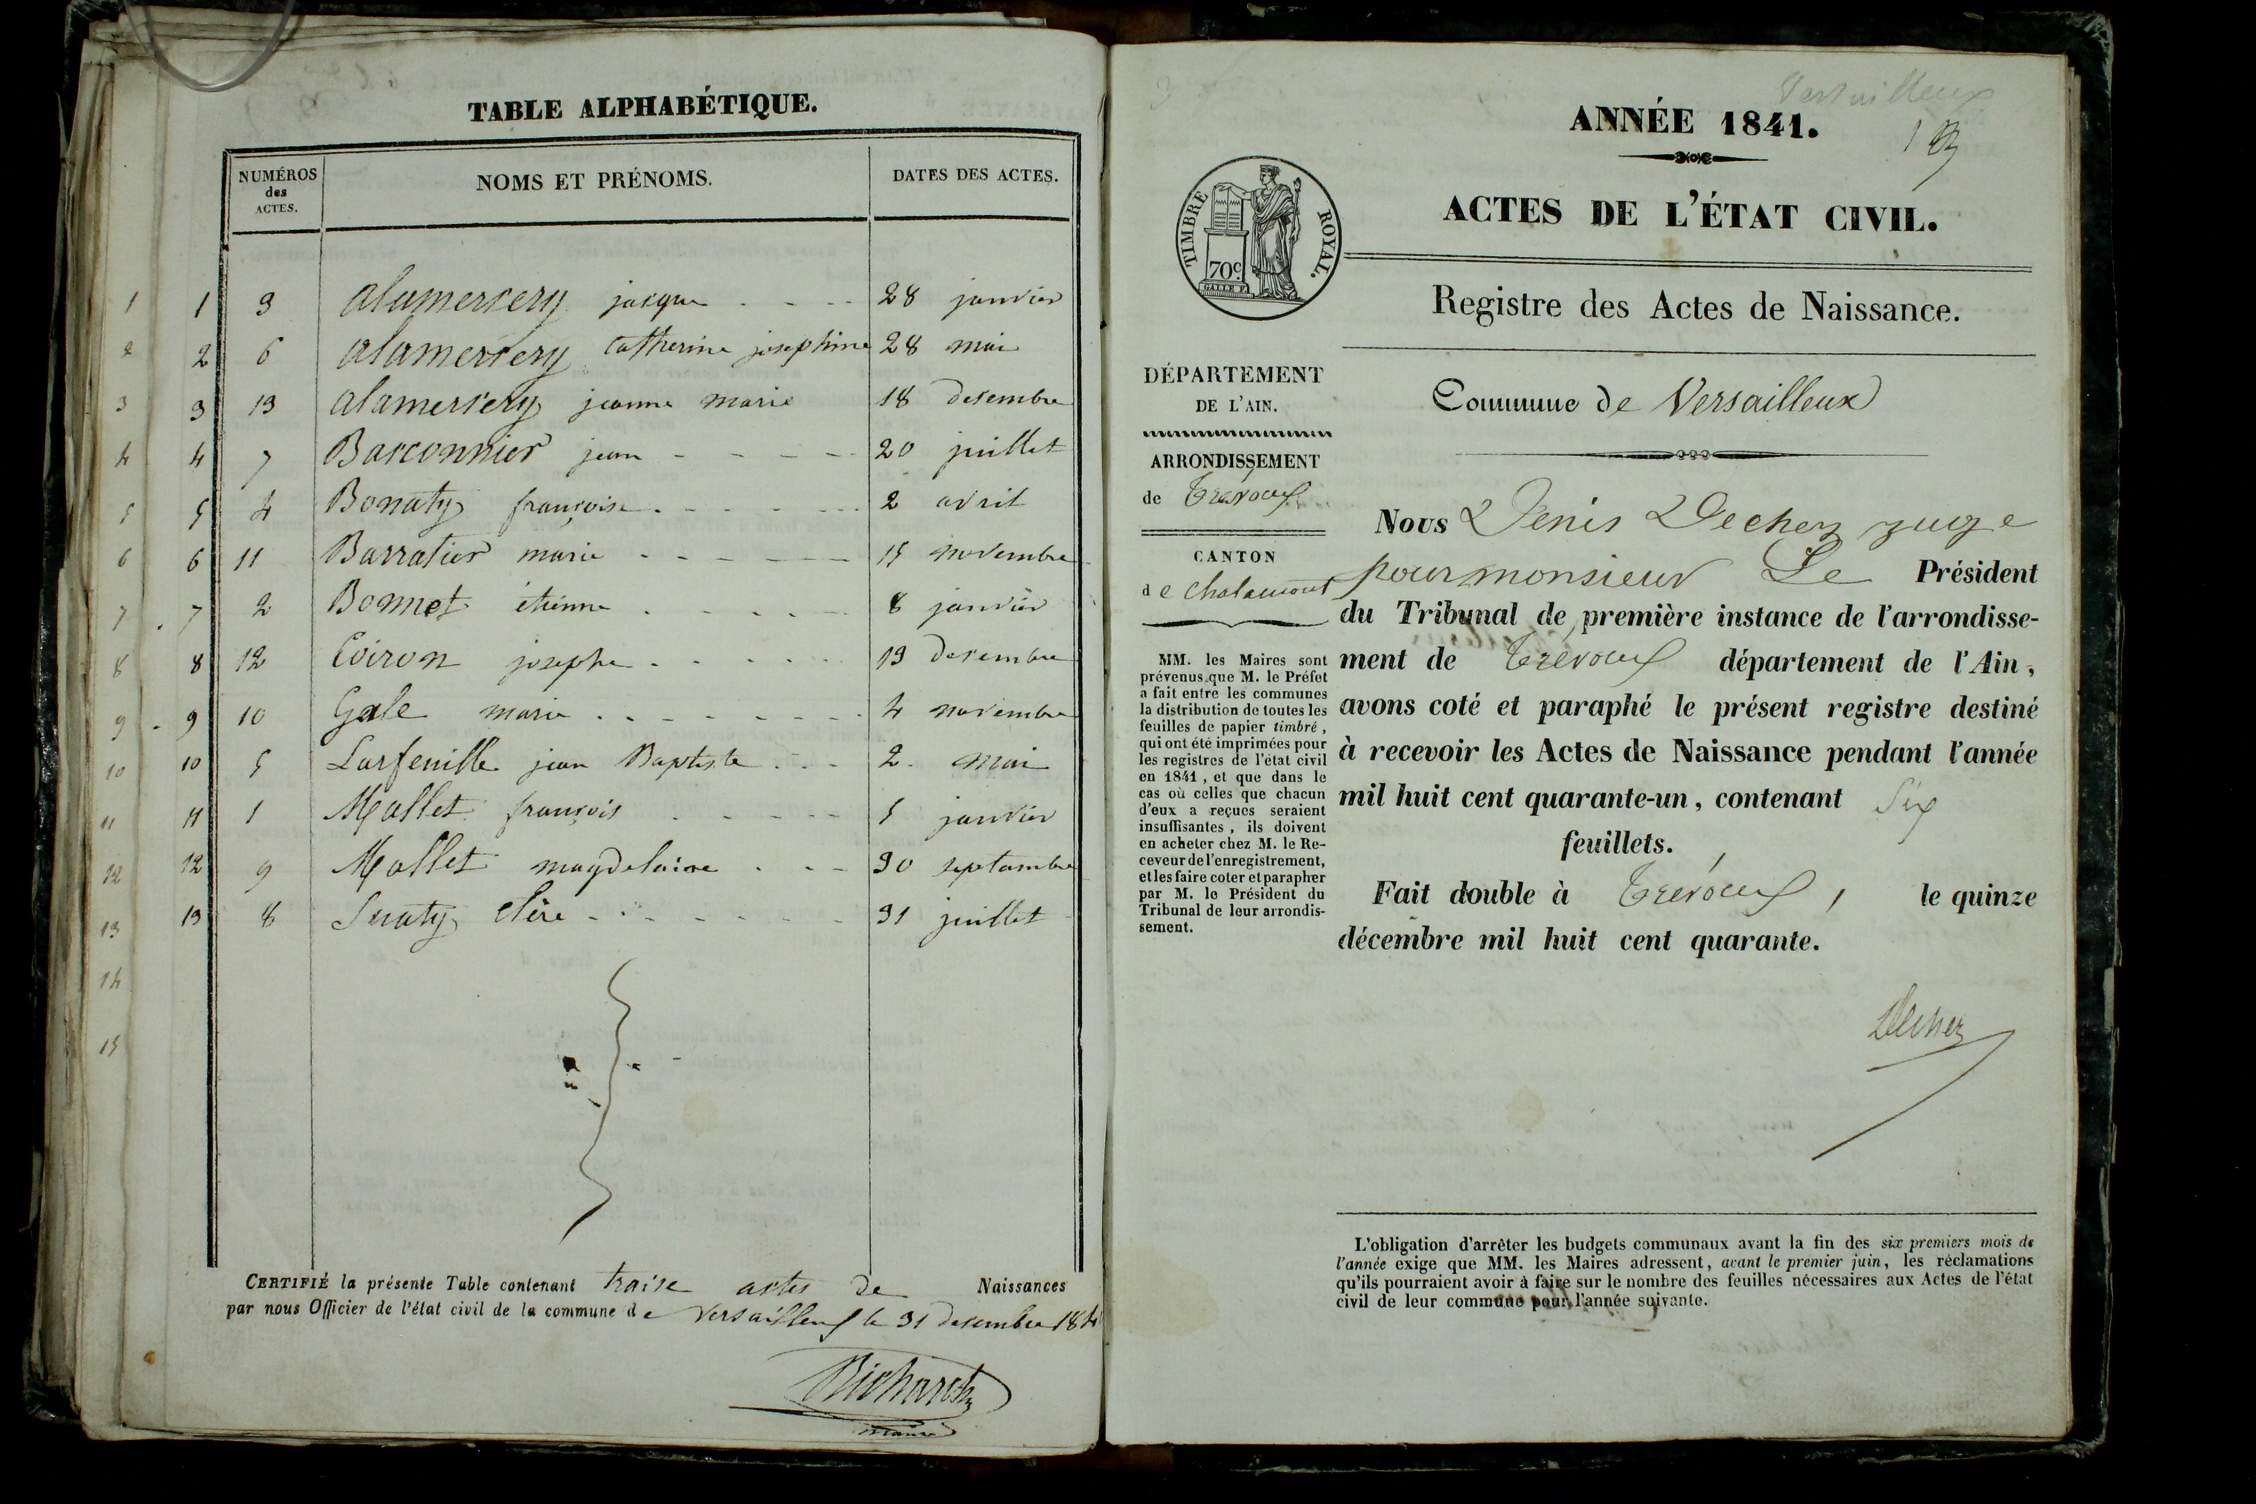 TABLE ALPHABÉTIQUE.
NUMÉROS des ACTES. NOMS ET PRÉNOMS. DATES DES ACTES.
1 1 3 alamersery jasque 28 janvier
2 2 6 alamersery Catherine josephine 28 mai
3 3 13 alamersery jeanne marie 18 desembre
4 4 7 Barconnier jean 20 juillet
5 5 4 Bonaty françoise 2 avril
6 6 11 Barratier marie 15 novembre
7 7 2 Bonnet étienne 8 janvier
8 8 12 Coiron josephe 13 desembre
9 9 10 Gale marie 4 novembre
10 10 5 Larfeuille jean Baptiste 2 mai
11 11 1 Mallet françois 5 janvier
12 12 9 Mallet magdelaine 30 septambre
13 13 8 Suaty 31 juillet
14
15
CERTIFIÉ la présente Table contenant traise actes de Naissances
par nous Officier de l'état civil de la commune de Versailleux le 31 desembre 184
Richard
maire
Versailleux
ANNÉE 1841.
1
TIMBRE ROYAL.
70c.
ACTES DE L'ÉTAT CIVIL.
Registre des Actes de Naissance.
Commune de Versailleux
DÉPARTEMENT
DE L'AIN.
ARRONDISSEMENT
de Trévoux
CANTON
de chalamont
MM. les Maires sont
prévenus que M. le Préfet
a fait entre les communes
la distribution de toutes les
feuilles de papier timbré,
qui ont été imprimées pour
les registres de l'état civil
en 1841, et que dans le
cas où celles que chacun
d'eux a reçues seraient
insuffisantes, ils doivent
en acheter chez M. le Re-
ceveur de l'enregistrement,
et les faire coter et parapher
par M. le Président du
Tribunal de leur arrondis-
sement.
Nous Denis Decher juge
pour monsieur Le Président
du Tribunal de première instance de l'arrondisse-
ment de Trévoux département de l'Ain,
avons coté et paraphé le présent registre destiné
à recevoir les Actes de Naissance pendant l'année
mil huit cent quarante-un, contenant Six
feuillets.
Fait double à Trévoux, le quinze
décembre mil huit cent quarante.
Decher
L'obligation d'arrêter les budgets communaux avant la fin des six premiers mois de
l'année exige que MM. les Maires adressent, avant le premier juin, les réclamations
qu'ils pourraient avoir à faire sur le nombre des feuilles nécessaires aux Actes de l'état
civil de leur commune pour l'année suivante.